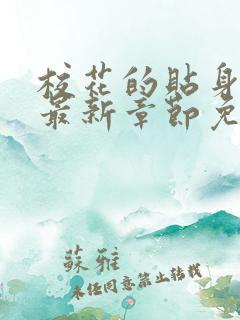 校花的貼身
最新章節免
蘇雅
未经同意禁止转载